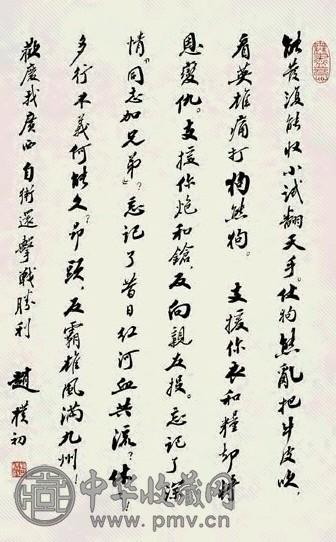 能發復能收小試翻天手。仗狗熊亂把牛皮吹,
看英雄痛打狗熊狗。 支援你衣和糧却將
恩變仇。支援你炮和鎗,反向親友投。忘記了深
情“同志加兄弟”?忘記了昔日红河血共流?休!
多行不義何能久?昂頭,反霸雄風滿九州!
歡慶我廣西自衛還擊戰勝利 趙樸初
中华收藏网
www.pmv.cn